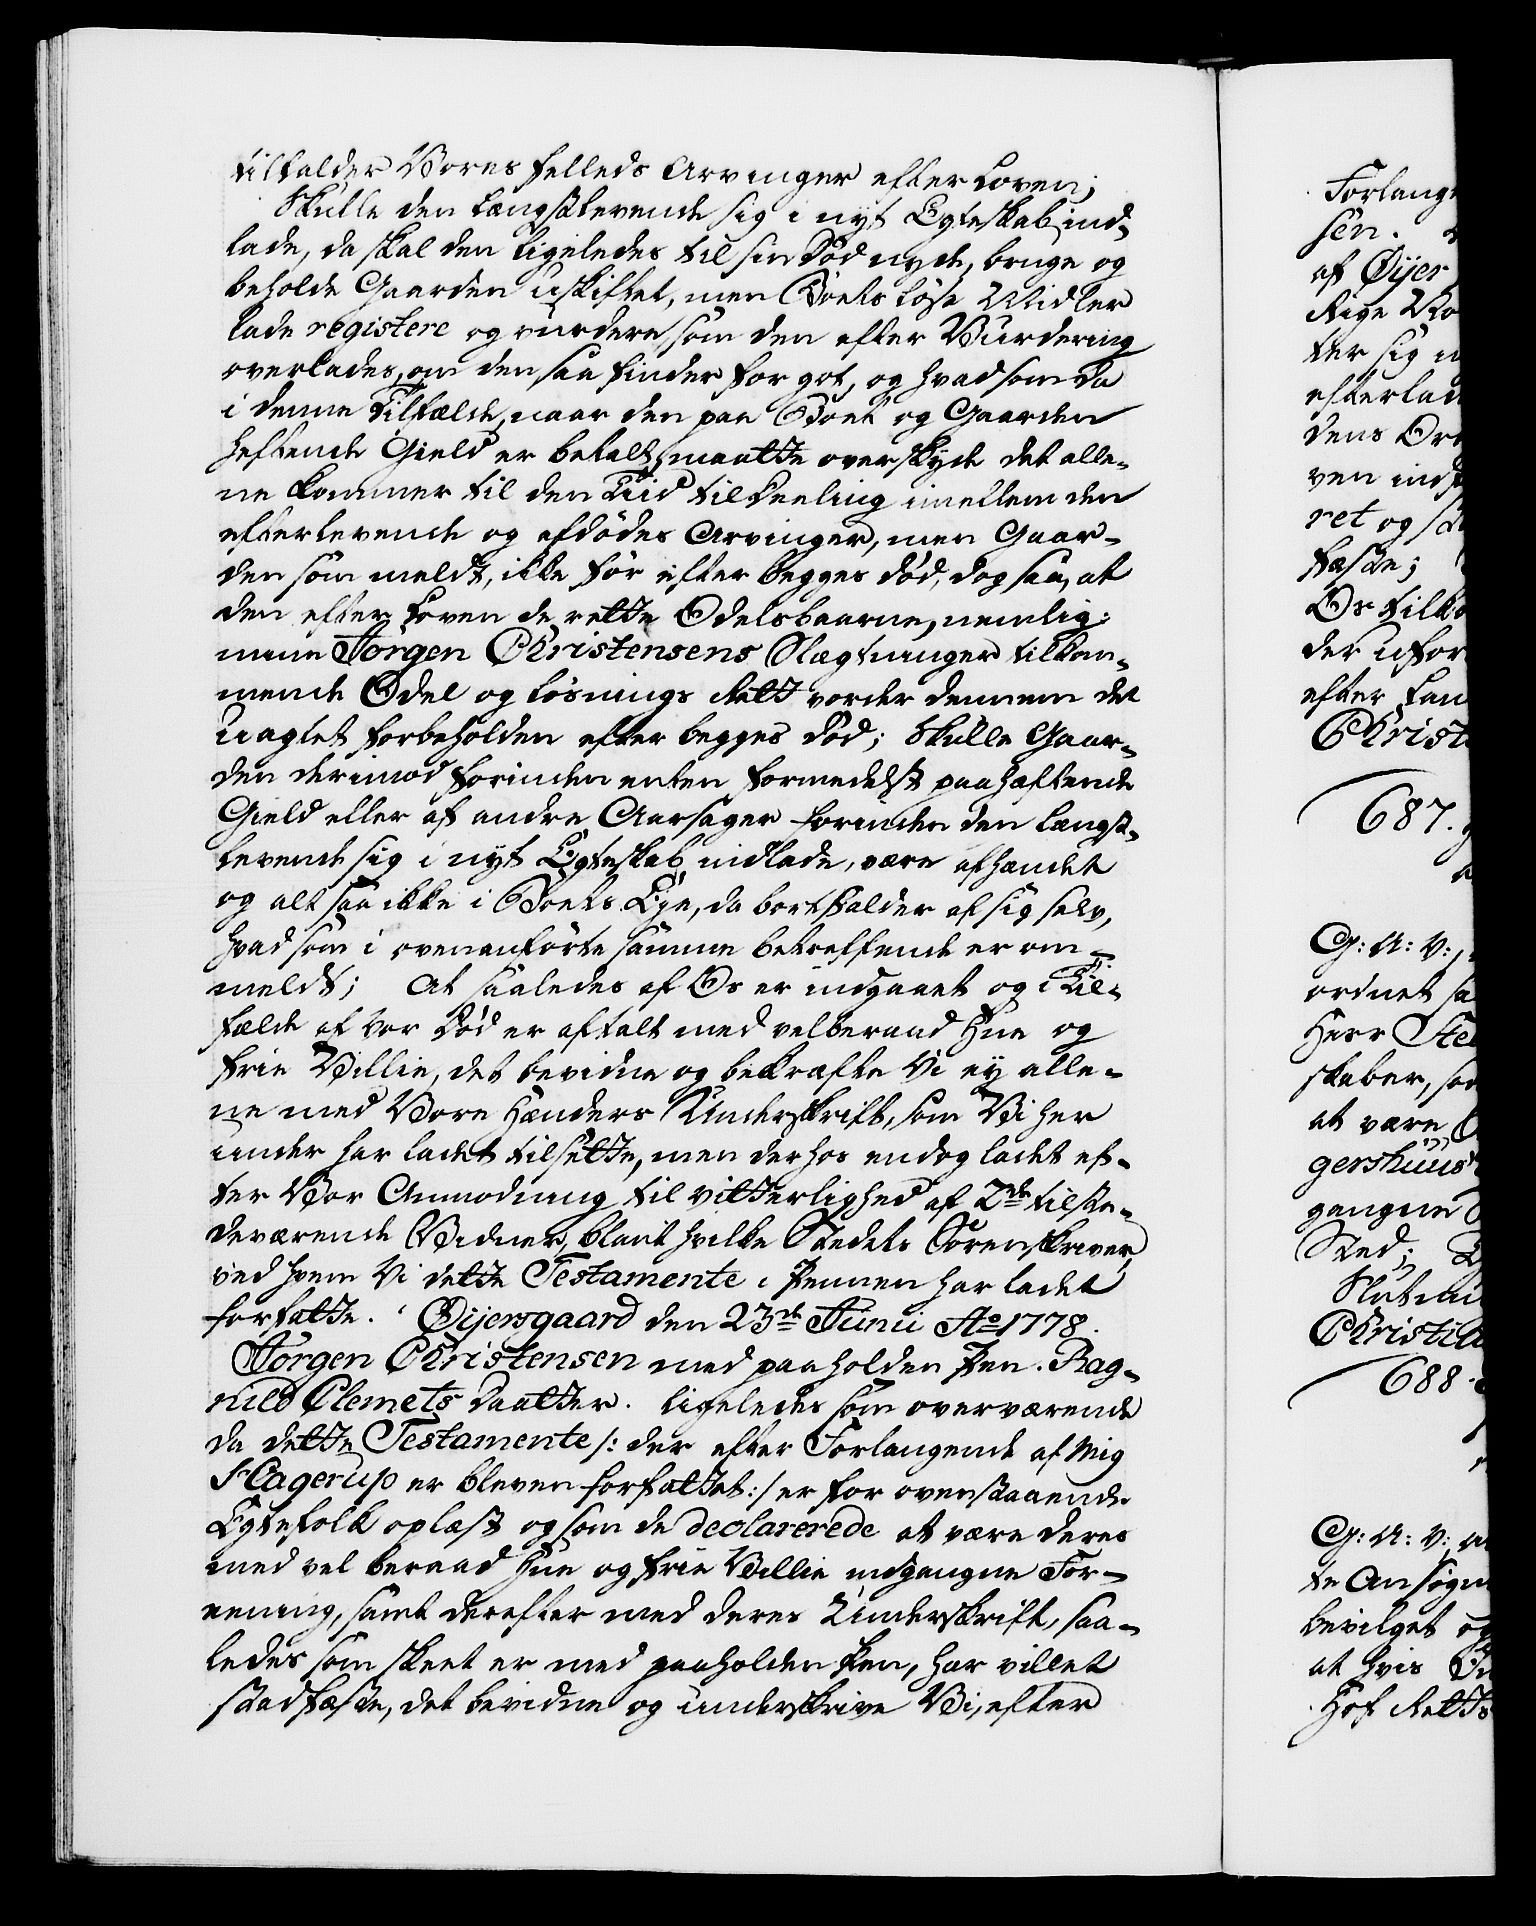 tilfalder Vores felleds Arvinger efter Loven;
Skulle den længstlevende sig i nyt Egteskab ind-
lade, da skal den ligeledes til sin Død nyde, bruge og
beholde Gaarden uskiftet, men Boets løse Midler
lade registere og vurdere som den efter Vurdering
overlades, om den saa finder for got, og hvad som da
i denne Tilfælde, naar den paa Boet og Gaarden
heftende Gield er betalt, maatte overskyde det alle-
ne kommer til den Tiid til Deeling imellem den
efterlevende og afdødes Arvinger, men Gaar-
den som meldt, ikke før efter begges død, dog saa, at
den efter Loven de rette Odelsbaarne, nemlig:
mine Jørgen Christensens Slægtninger tilkom-
mende Odel og Løsnings Rett vorder dennem det
uagtet forbeholden efter begges død; Skulle Gaar-
den derimod forinden enten formedelst paahæftende
Gield eller af andre Aarsager forinden den længst-
levende sig i nyt Egteskab indlade, være afhændet
og alt saa ikke i Boets Eje, da bortfalder af sig selv,
hvad som i ovenanførte samme betreffende er om-
meldt; At saaledes af Os er indgaaet og i Til-
fælde af vor Død er aftalt med velberaad Hue og
frie Villie, det bevidne og bekræfte Vi ey alle-
ne med Vore Hænders Underskrift, som Vi her
under har ladet tilsette, men derhos endog ladet ef-
ter Vor Anmodning til vitterlighed af 2de tilste-
deværende Vidner, blant hvilke Stedets Sorenskriver
ved hvem Vi dette Testamente i Pennen har ladet
forfatte. Øijersgaard den 23de Junii Ao 1778.
Jørgen Christensen med paaholden Pen. Rag-
nild Clemets Daatter. ligeledes som overværende
da dette Testamente /: der efter Forlangende af Mig
Hagerup er bleven forfattet :/ er for ovenstaaende
Egtefolk oplæst og som de declarerede at være deres
med vel beraad Hue og frie Villie indgangne For-
eening, samt derefter med deres Underskrift, saa-
ledes som skeet er med paaholden Pen, har villet
stadfæste, det bevidne og underskrive Vi, efter
Forlang
sen.
af Øijer
Rige
ter sig
efterlad
dens
ven ind
ret og
fæste;
Os tilko
der ufor
efter
Christ
687.
G: A: V:
ordnet
Herr
skaber,
at være
gershuus
gangne
Sted;
Slot
Christi
688.
G: A: V:
te Ansøgn
bevilget og
at hvis
Hof Retts